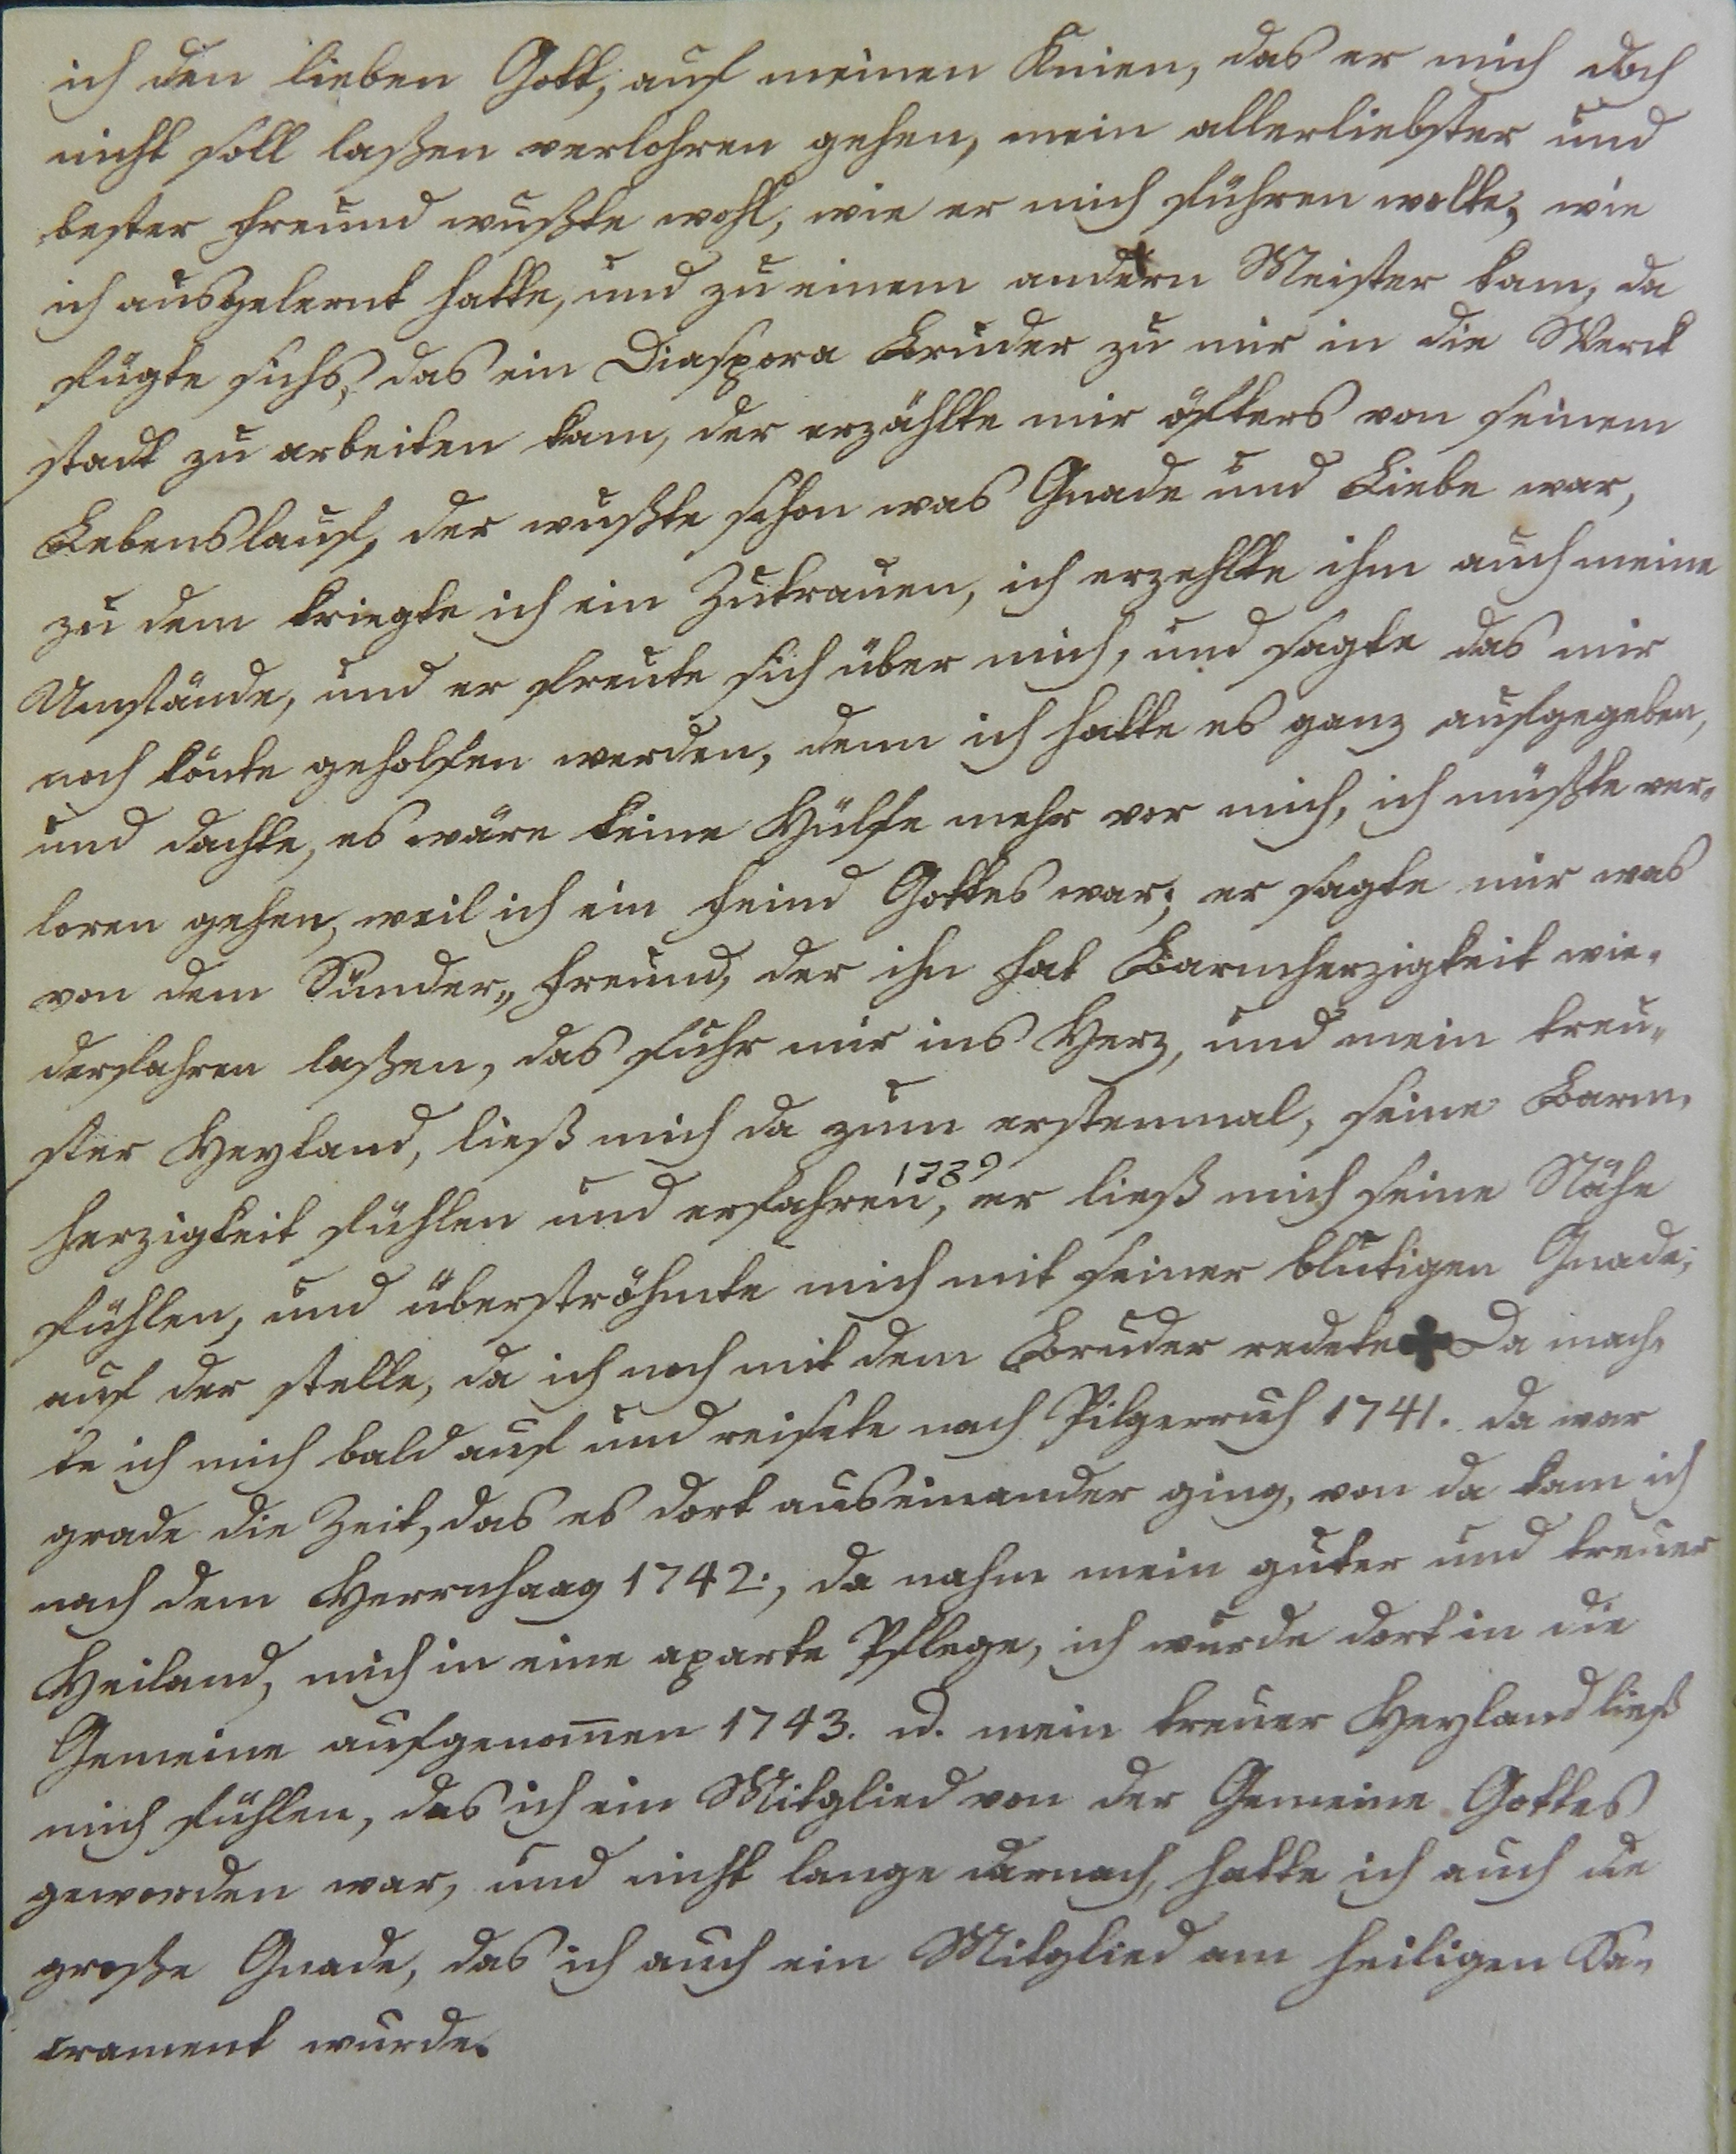 ich den lieben Gott, auf meinen Knien, das er mich doch
nicht soll laßen verlohren gehen, mein allerliebster und
bester Freund wußte wohl, wie er mich führen wolte, wie
ich ausgelernt hatte, und zu einem andern Meister kam, da
fügte sichs, das ein Diaspora Bruder zu mir in die Werck
stadt zu arbeiten kam, der erzählte mir öfters von seinem
Lebenslauf, der wußte schon was Gnade und Liebe war,
zu dem kriegte ich ein Zutrauen, ich erzehlte ihm auch meine
Umstände, und er freute sich über mich, und sagte das mir
noch könte geholfen werden, denn ich hatte es ganz aufgegeben,
und dachte, es wäre keine Hülfe mehr vor mich, ich müßte ver„
loren gehen, weil ich ein Feind Gottes war; er sagte mir was
von dem Sünder„ Freund, der ihn hat Barmherzigkeit wie„
derfahren laßen, das fuhr mir ins Herz, und mein treu„
ster Heyland, ließ mich da zum erstenmal, seine Barm„
herzigkeit fühlen und erfahren, 1739 er ließ mich seine Nähe
fühlen, und überströhmte mich mit seiner blutigen Gnade,
auf der stelle, da ich noch mit dem Bruder redete ✤ Da mach„
te ich mich bald auf und reisete nach Pilgerruh 1741. da war
grade die Zeit, das es dort auseinander ging, von da kam ich
nach dem Herrnhaag 1742., da nahm mein guter und treuer
Heiland, mich in eine aparte Pflege, ich wurde dort in die
Gemeine aufgenom̅en 1743. u. mein treuer Heyland ließ
mich fühlen, das ich ein Mitglied von der Gemeine Gottes
geworden war, und nicht lange darnach, hatte ich auch die
große Gnade, das ich auch ein Mitglied am heiligen Sa„
crament wurde.